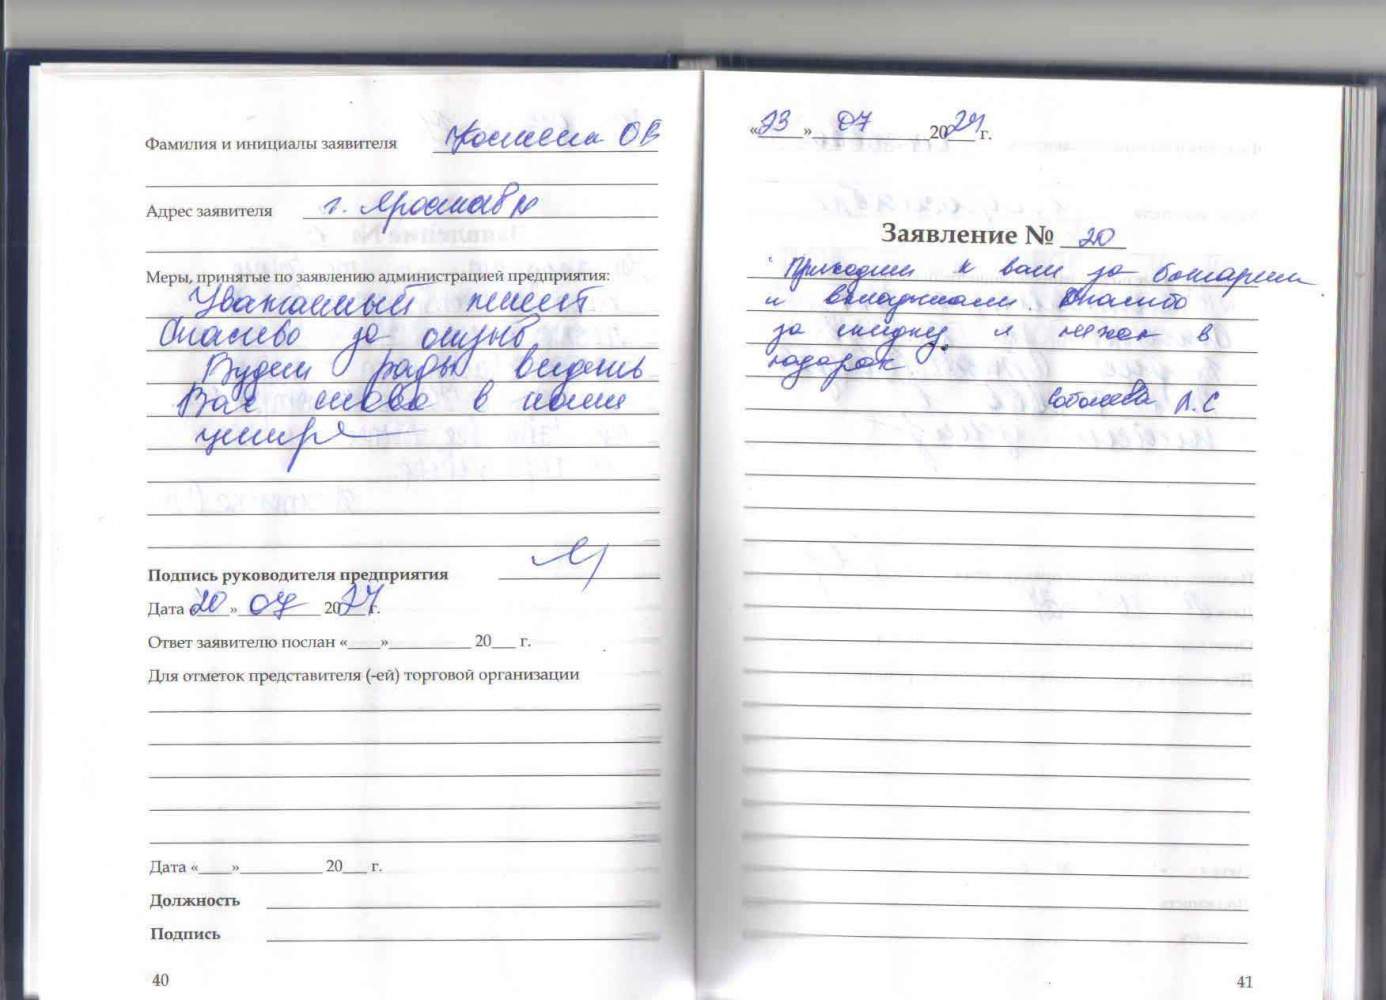 Фамилия и инициалы заявителя ОВ
Адрес заявителя г. Ярославль
Меры, принятые по заявлению администрацией предприятия:
Уважаемый клиент
Спасибо за отзыв
Будем рады видеть
Вас снова в нашем
центре
Подпись руководителя предприятия
Дата «20» 07 2024 г.
Ответ заявителю послан «____»__________ 20___ г.
Для отметок представителя (-ей) торговой организации
Дата «____»__________ 20___ г.
Должность
Подпись
40
«23» 07 2024 г.
Заявление № 20
Приходим к вам за батареями
и Спасибо
за скидку и чехол в
подарок
Соболева А.С
41